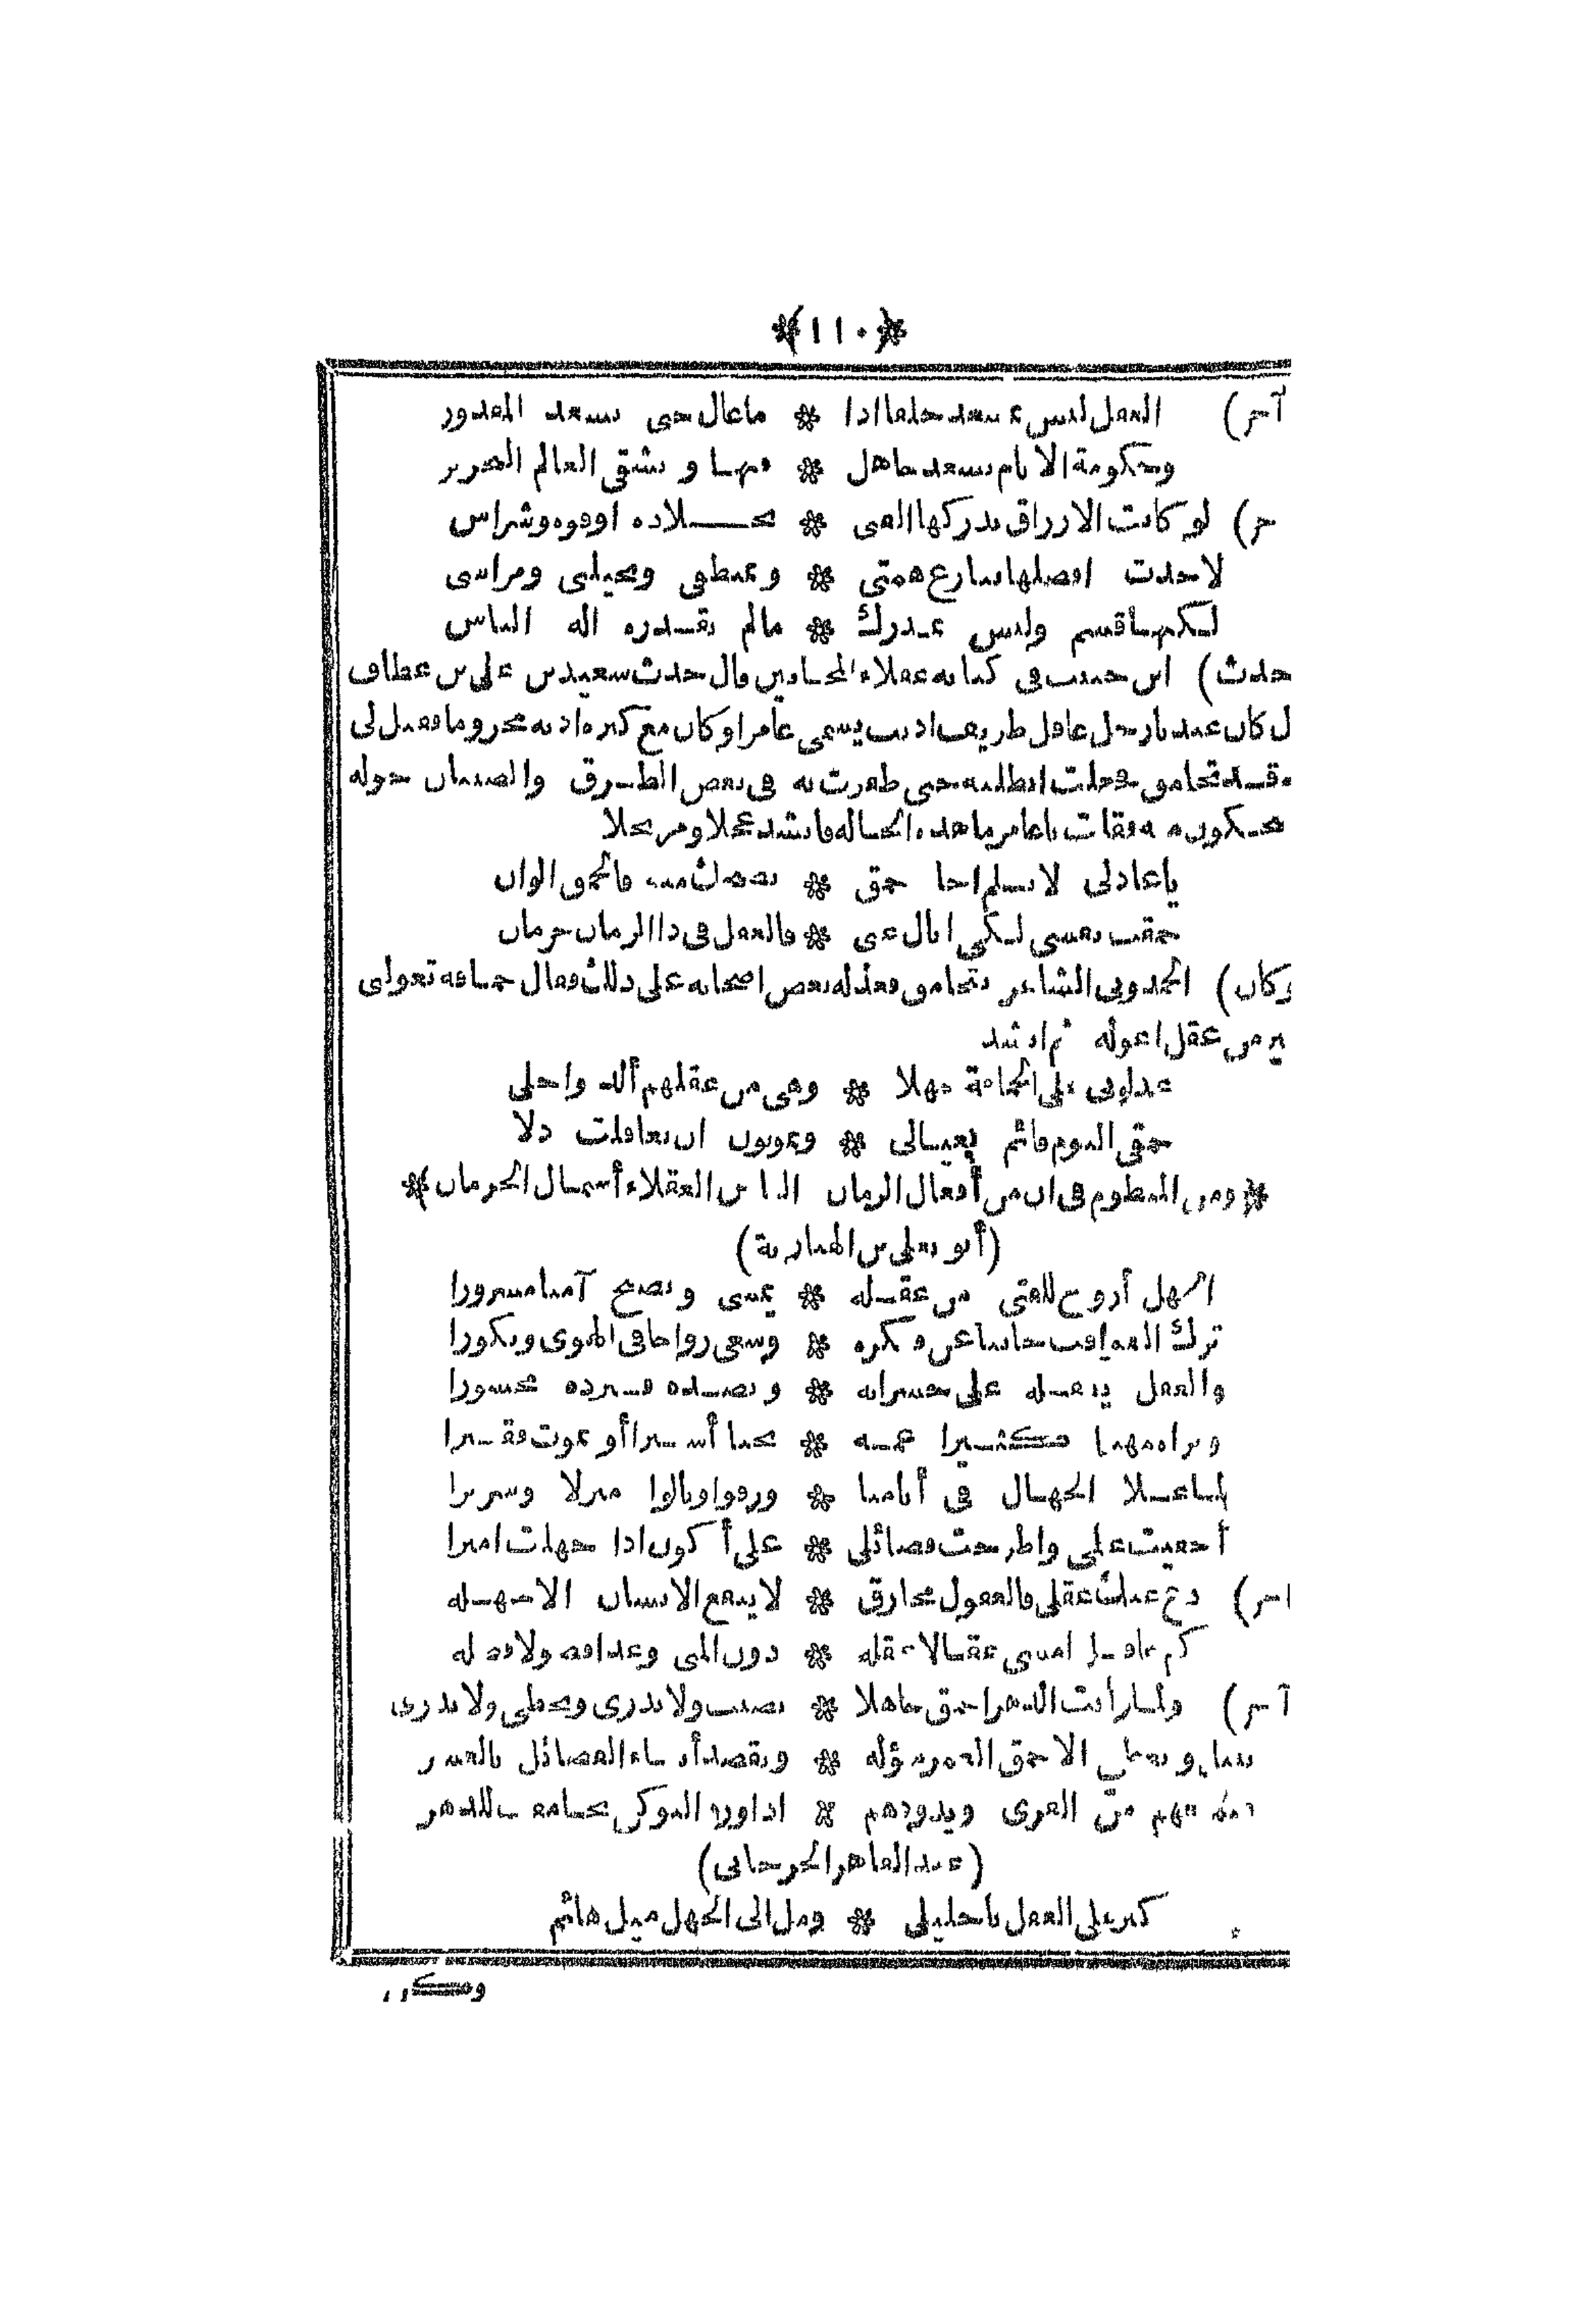 ﴿١١٠﴾
آخر) العقل ليس بمسعد خلقا اذا * ما عال حتى يسعد المقدور
وحكومة الايام يسعد جاهل * فيها ويشقى العالم النحرير
خر) لو كانت الارزاق يدركها الفتى * بجلادة او قوة وشراس
لاخذت افضلها بسارع همتى * وتيقظى وتحيلى ومراسى
لكنها قسم وليس بمدرك * مالم يقدره اله الناس
حدث) ابن حبيب فى كتابه عقلاء المجانين قال حدث سعيد بن على بن عطاف
ل كان عندنا رجل عاقل ظريف اديب يسمى عامرا وكان مع كثرة ادبه محروما فقيل لى
قد تحامق فجعلت اطلبه حتى ظفرت به فى بعض الطرق والصبيان حوله
يضحكون منه فقلت يا عامر ما هذه الحالة فانشد عجلا ومرتجلا
يا عاذلى لا تلم اخا حمق * يضحك منه فالحمق الوان
حمقت نفسى لكى انال غنى * فالعقل فى ذا الزمان حرمان
وكان) الحمدونى الشاعر يتحامق فعذله بعض اصحابه على ذلك فقال حماقة تعولنى
ير من عقل اعوله ثم انشد
عذلونى على الحماقة جهلا * وهى من عقلهم ألذ واحلى
حمقى اليوم قائم بعيالى * ويموتون ان تعاقلت ذلا
﴿ومن المنظوم فى ان من أفعال الزمان الناس العقلاء أسمال الحرمان﴾
(أبو يعلى بن الهبارية)
الجهل أروح للفتى من عقله * يمسى ويصبح آمنا مسرورا
ترك العواقب جانبا عن فكره * وسعى رواحا فى الهوى وبكورا
والعقل يدعله على حسراته * ويصده فيرده محسورا
ويراه مهما كثيرا همه * يحيا أسيرا أو يموت فقيرا
لما علا الجهال فى أيامنا * ورقوا ونالوا منبرا وسريرا
أخفيت علمى واطرحت فضائلى * على أكون اذا جهلت اميرا
اخر) دع عنك عقلى فالعقول مخارق * لا ينفع الانسان الا جهله
كم عاقل امسى عقالا عقله * دون المنى وعدا فه ولا فه له
آخر) ولما رأيت الدهر احمق جاهلا * يصيب ولا يدرى ويخطى ولا يدرى
ويعطى الاحمق الغمر سؤله * ويقصد أبناء الفضائل بالعسر
من القرى ويذودهم * اذا ورد النوكى بجامعة للدهر
(عبد القاهر الجرجانى)
كبر على العقل يا خليلى * ومل الى الجهل ميل هائم
وكن